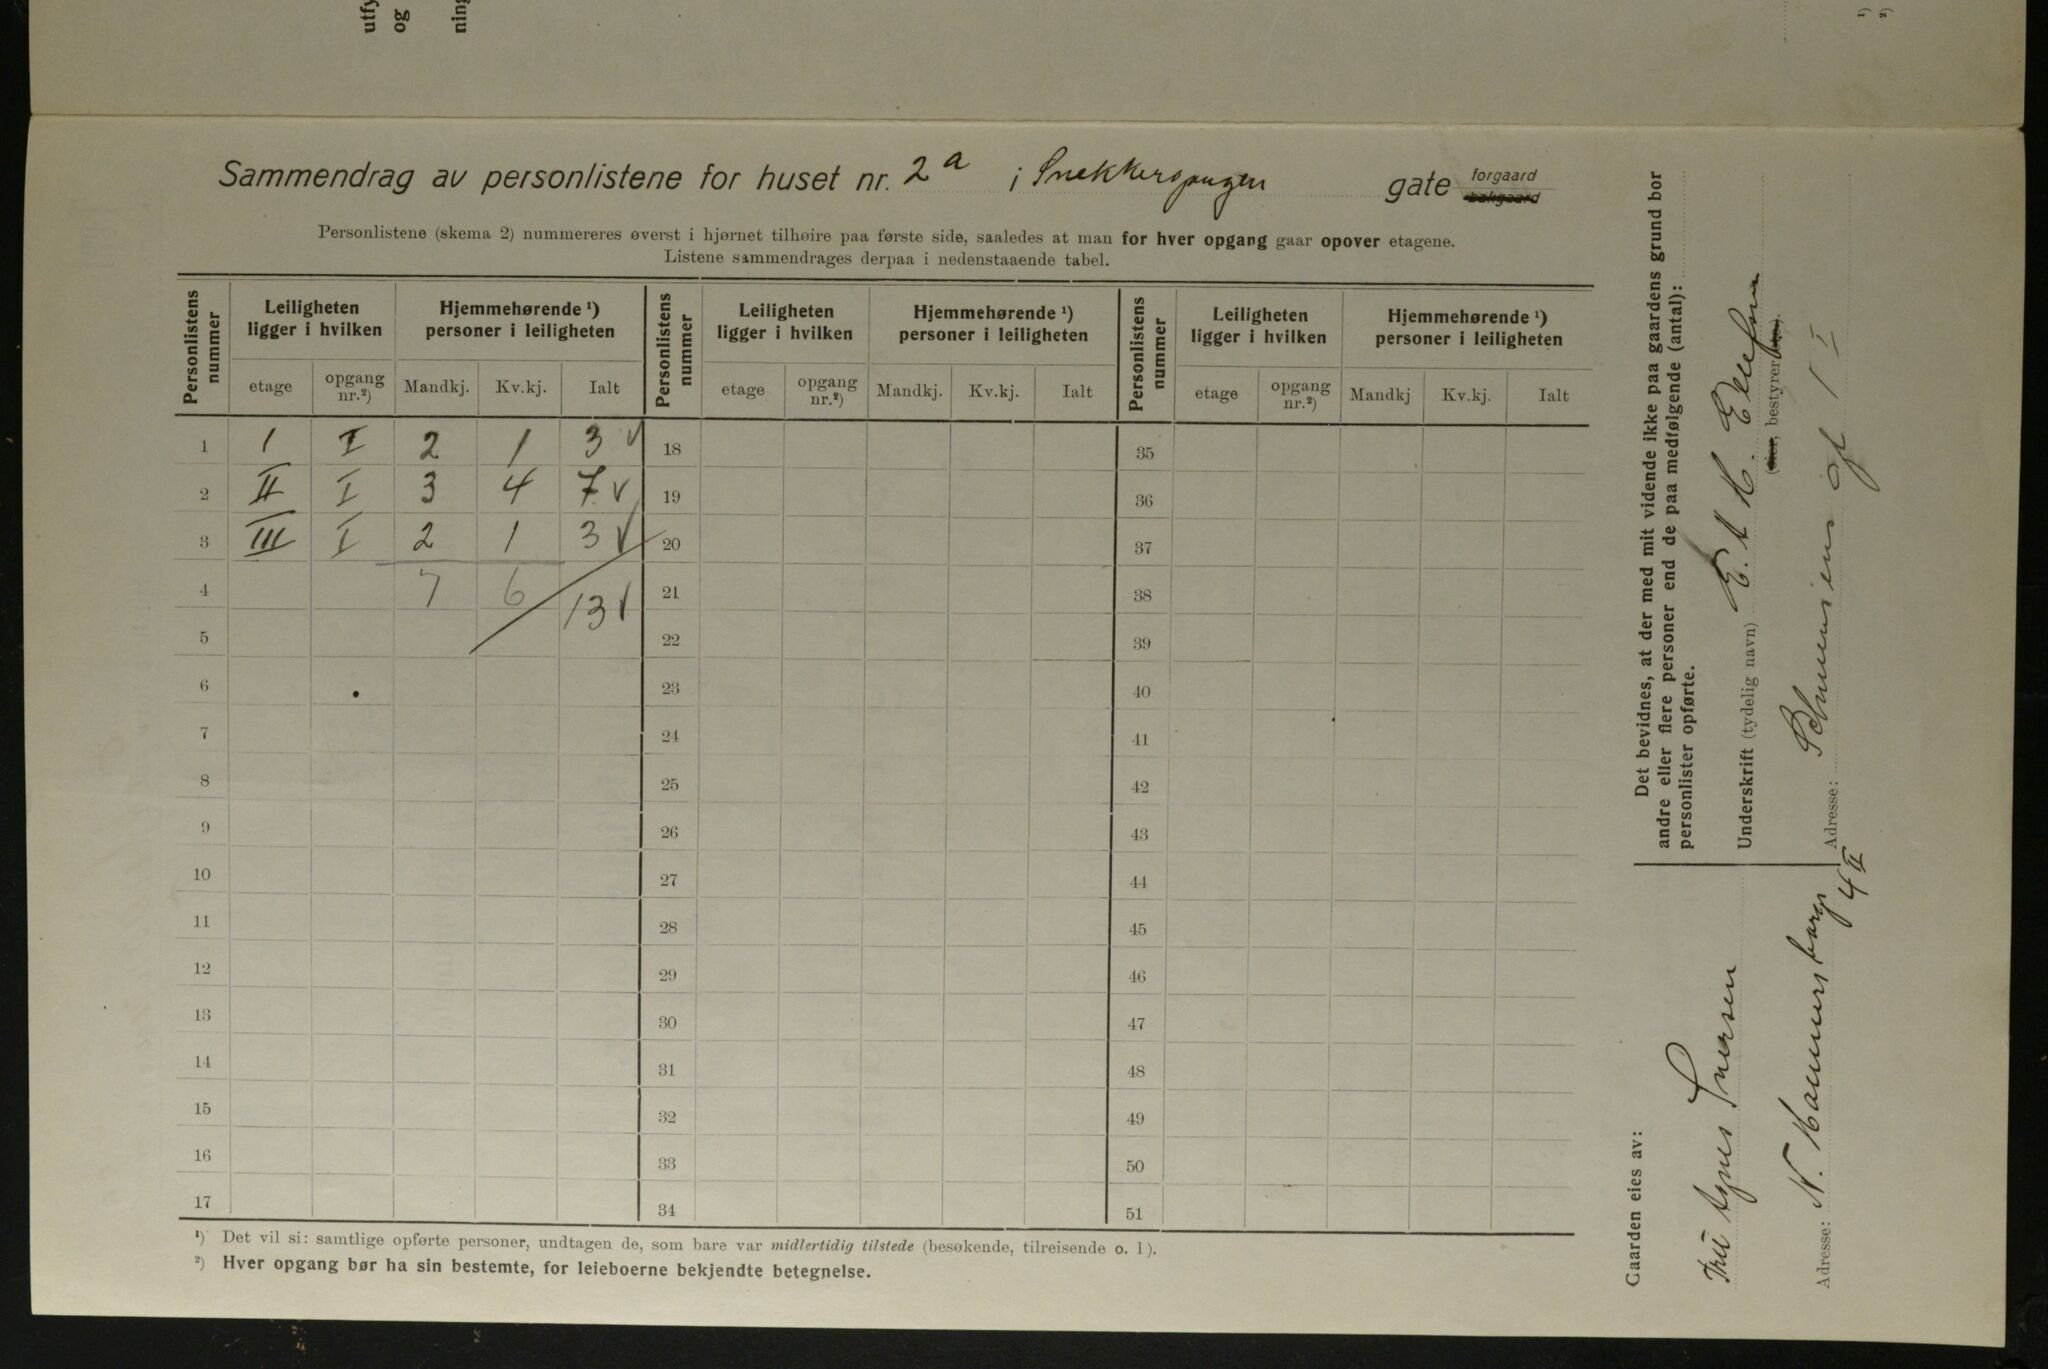 utfy
og
ning
¹)
²)
Sammendrag av personlistene for huset nr. 2a i Snekkergangen gate forgaard
bakgaard
Personlistene (skema 2) nummereres øverst i hjørnet tilhøire paa første side, saaledes at man for hver opgang gaar opover etagene.
Listene sammendrages derpaa i nedenstaaende tabel.
Personlistens nummer | Leiligheten ligger i hvilken | Hjemmehørende ¹) personer i leiligheten | Personlistens nummer | Leiligheten ligger i hvilken | Hjemmehørende ¹) personer i leiligheten | Personlistens nummer | Leiligheten ligger i hvilken | Hjemmehørende ¹) personer i leiligheten
etage | opgang nr.²) | Mandkj. | Kv.kj. | Ialt | etage | opgang nr.²) | Mandkj. | Kv.kj. | Ialt | etage | opgang nr.²) | Mandkj | Kv.kj. | Ialt
1 I I 2 1 3 √ 18 35
2 II I 3 4 7 √ 19 36
3 III I 2 1 3 √ 20 37
4 7 6 13 √ 21 38
5 22 39
6 23 40
7 24 41
8 25 42
9 26 43
10 27 44
11 28 45
12 29 46
13 30 47
14 31 48
15 32 49
16 33 50
17 34 51
¹) Det vil si: samtlige opførte personer, undtagen de, som bare var midlertidig tilstede (besøkende, tilreisende o. l).
²) Hver opgang bør ha sin bestemte, for leieboerne bekjendte betegnelse.
Det bevidnes, at der med mit vidende ikke paa gaardens grund bor
andre eller flere personer end de paa medfølgende (antal):
personlister opførte.
Underskrift (tydelig navn) E. A. H.
(eier, bestyrer
Adresse:
Gaarden eies av:
Fru Agnes Iversen
Adresse: N. Hammersborgs
4 II